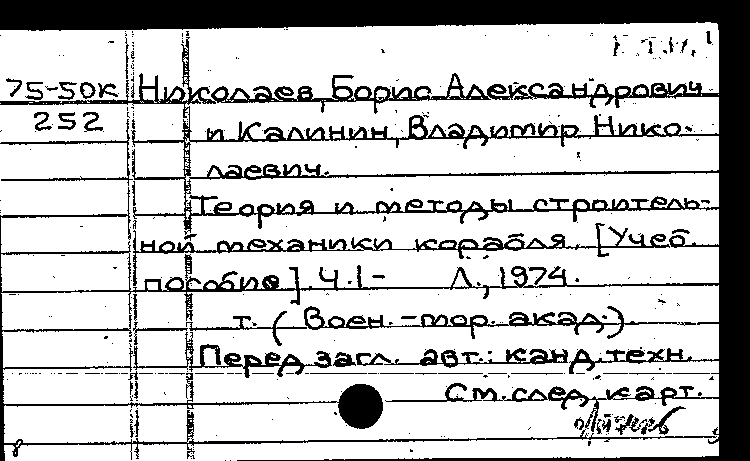 75-50к Николаев, Борис Александрович
252 и Калинин, Владимир Нико-
лаевич.
Теория и методы строитель-
ной механики корабля. [Учеб.
пособие]. Ч.1- Л., 1974.
т. (Воен.-мор. акад.).
Перед загл. авт.: канд. техн.
См. след. карт.
8